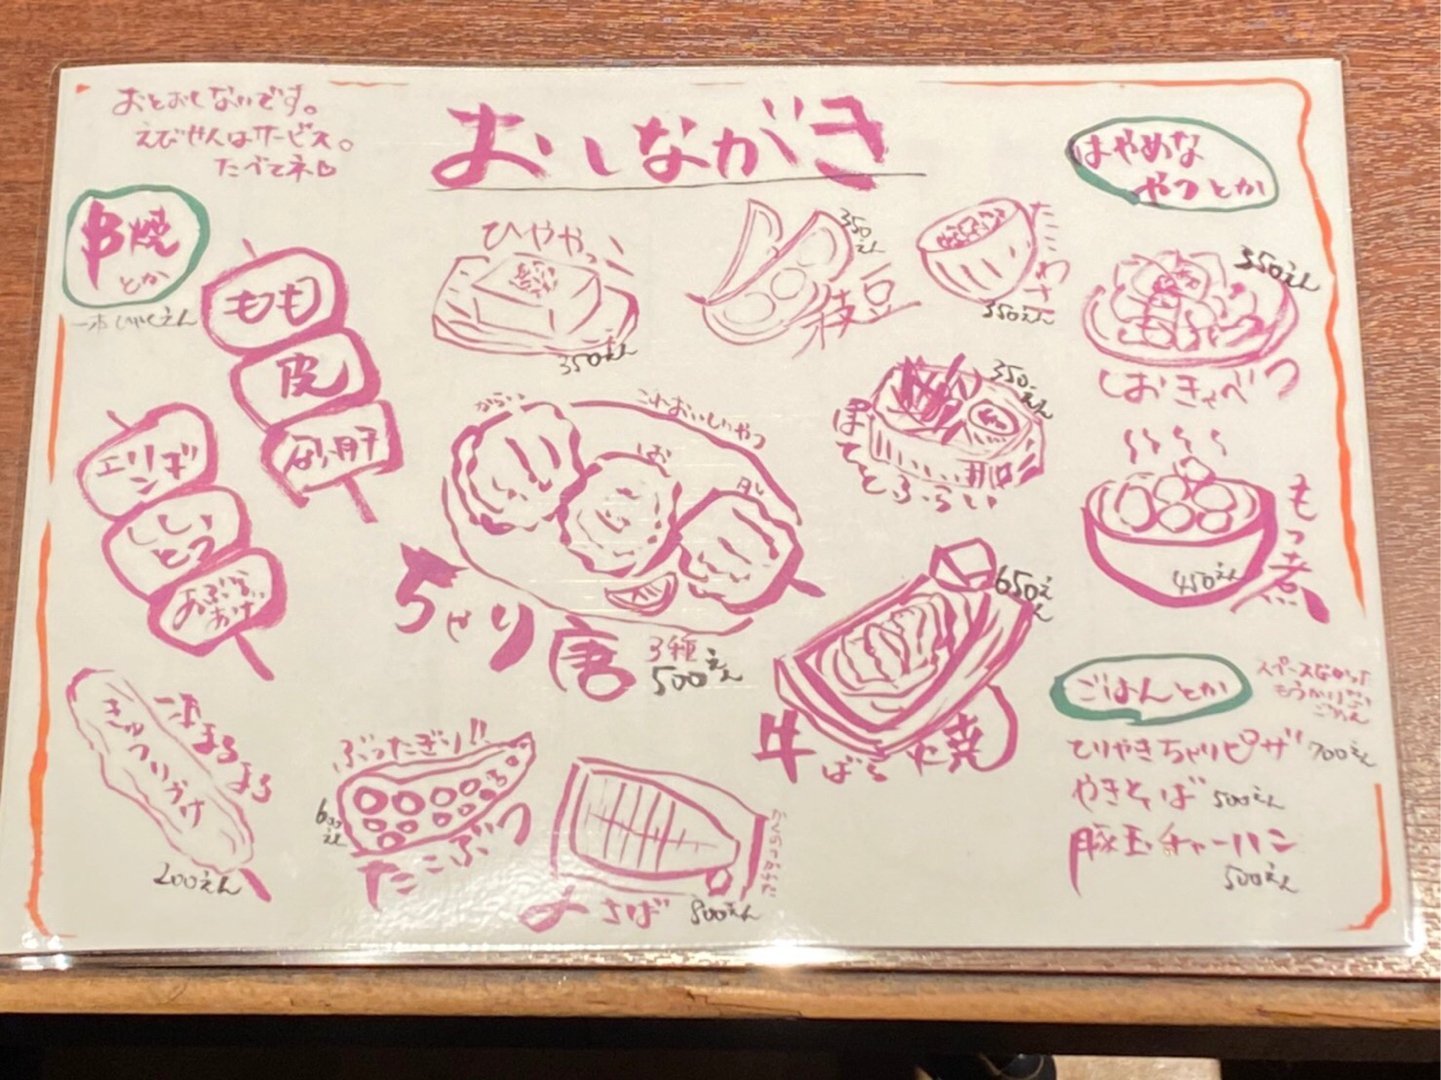 おとおしないです。
えびせんはサービス。
たべてネ♡
おしながき
はやめな
やつとか
串焼
とか
一本ひゃくえん
もも
皮
エリンギ
しし
とう
あぶら
あげ
一本まるまる
きゅうりづけ
200えん
ひややっこ
350えん
枝豆
350えん
たこわさ
350えん
しおきゃべつ
350えん
ぽてとふらい
350えん
からい
しお
これおいしいやつ
ちゃり唐
3種
500えん
もつ煮
450えん
牛ばら焼
650えん
ぶったぎり!!
たこぶつ
600えん
さば
800えん
ごはんとか
スペースなかった
ごめん
てりやきちゃりピザ 700えん
やきそば 500えん
豚玉チャーハン
500えん